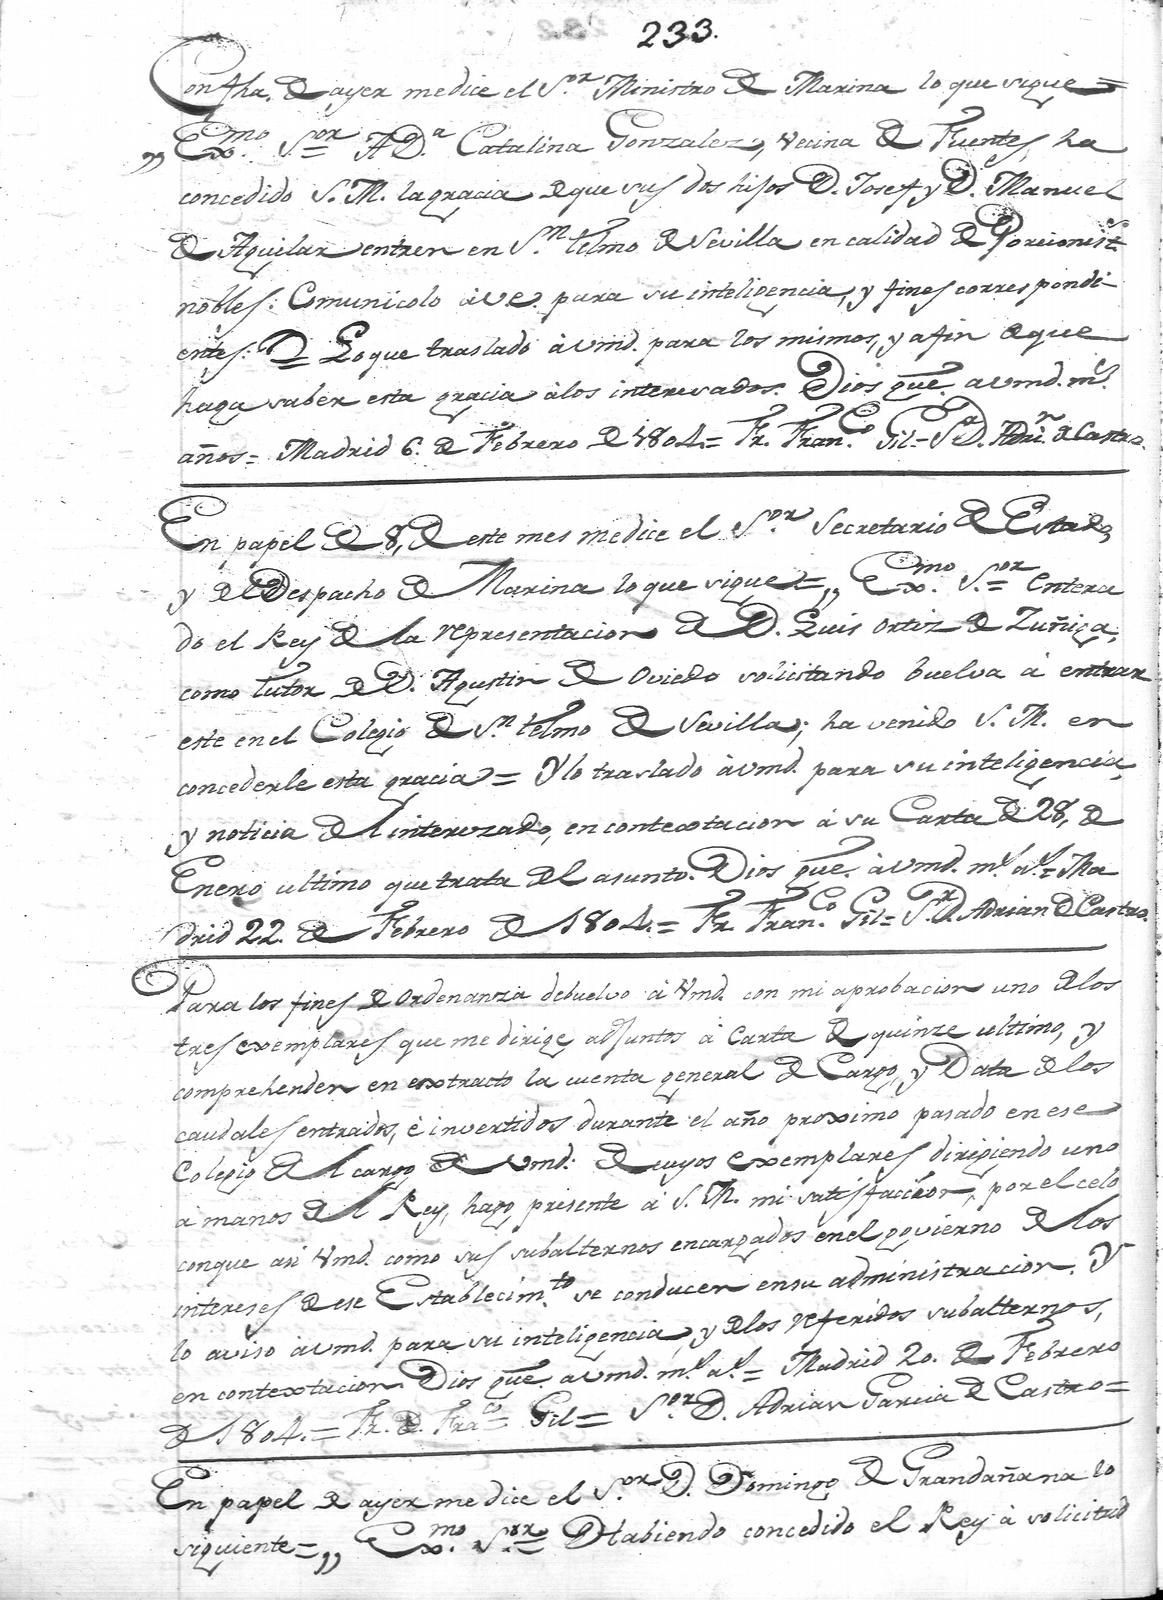 233.
Con fha. de ayer me dice el S.or Ministro de Marina lo que sigue =
„ Ex.mo S.or A D.a Catalina Gonzalez, vecina de Fuentes, ha
concedido S. M. la gracia de que sus dos hijos D. Josef y D. Manuel
de Aguilar entren en S.n telmo de Sevilla en calidad de Porcionist.s
nobles: Comunicolo à V.E. para su inteligencia, y fines correspondi-
entes: = Lo que traslado à vmd. para los mismos, y a fin de que
haga saber esta gracia à los interesados. Dios gue. a vmd. m.s
años = Madrid 6. de Febrero de 1804 = Fr. Fran.co Gil = S.r D. Adri.n de Castro.
En papel de 8, de este mes me dice el S.or Secretario de Estado,
y del Despacho de Marina lo que sigue = „ Ex.mo S.or Entera
do el Rey de la representacion de D. Luis Ortiz de Zuñiga,
como tutor de D. Agustin de Oviedo solicitando buelva à entrar
este en el Colegio de S.n telmo de Sevilla; ha venido S. M. en
concederle esta gracia = Y lo traslado à vmd. para su inteligencia,
y noticia del interezado, en contextacion à su Carta de 28, de
Enero ultimo que trata del asunto. Dios gue. à vmd. m.s a.s = Ma
drid 22. de Febrero de 1804. = Fr. Fran.co Gil = S.r D. Adrian de Castro.
Para los fines de Ordenanza debuelvo à vmd. con mi aprobacion uno de los
tres exemplares que me dirige adjuntos à Carta de quinze ultimo, y
comprehenden en extracto la cuenta general de Cargo, y Data de los
caudales entrados, è invertidos durante el año proximo pasado en ese
Colegio del cargo de vmd: de cuyos exemplares dirigiendo uno
a manos del Rey, hago presente à S. M. mi satisfaccion, por el celo
con que asi vmd. como sus subalternos encargados en el govierno de los
intereses de ese Establecim.to se conducen en su administracion. Y
lo aviso à vmd. para su inteligencia, y de los referidos subalternos,
en contextacion. Dios gue. a vmd. m.s a.s = Madrid 20. de Febrero
de 1804. = Fr. D. Fra.co = Gil = S.or D. Adrian Garcia de Castro =
En papel de ayer me dice el S.or D. Domingo de Grandañana lo
siguiente = „ Ex.mo S.or Habiendo concedido el Rey à solicitud